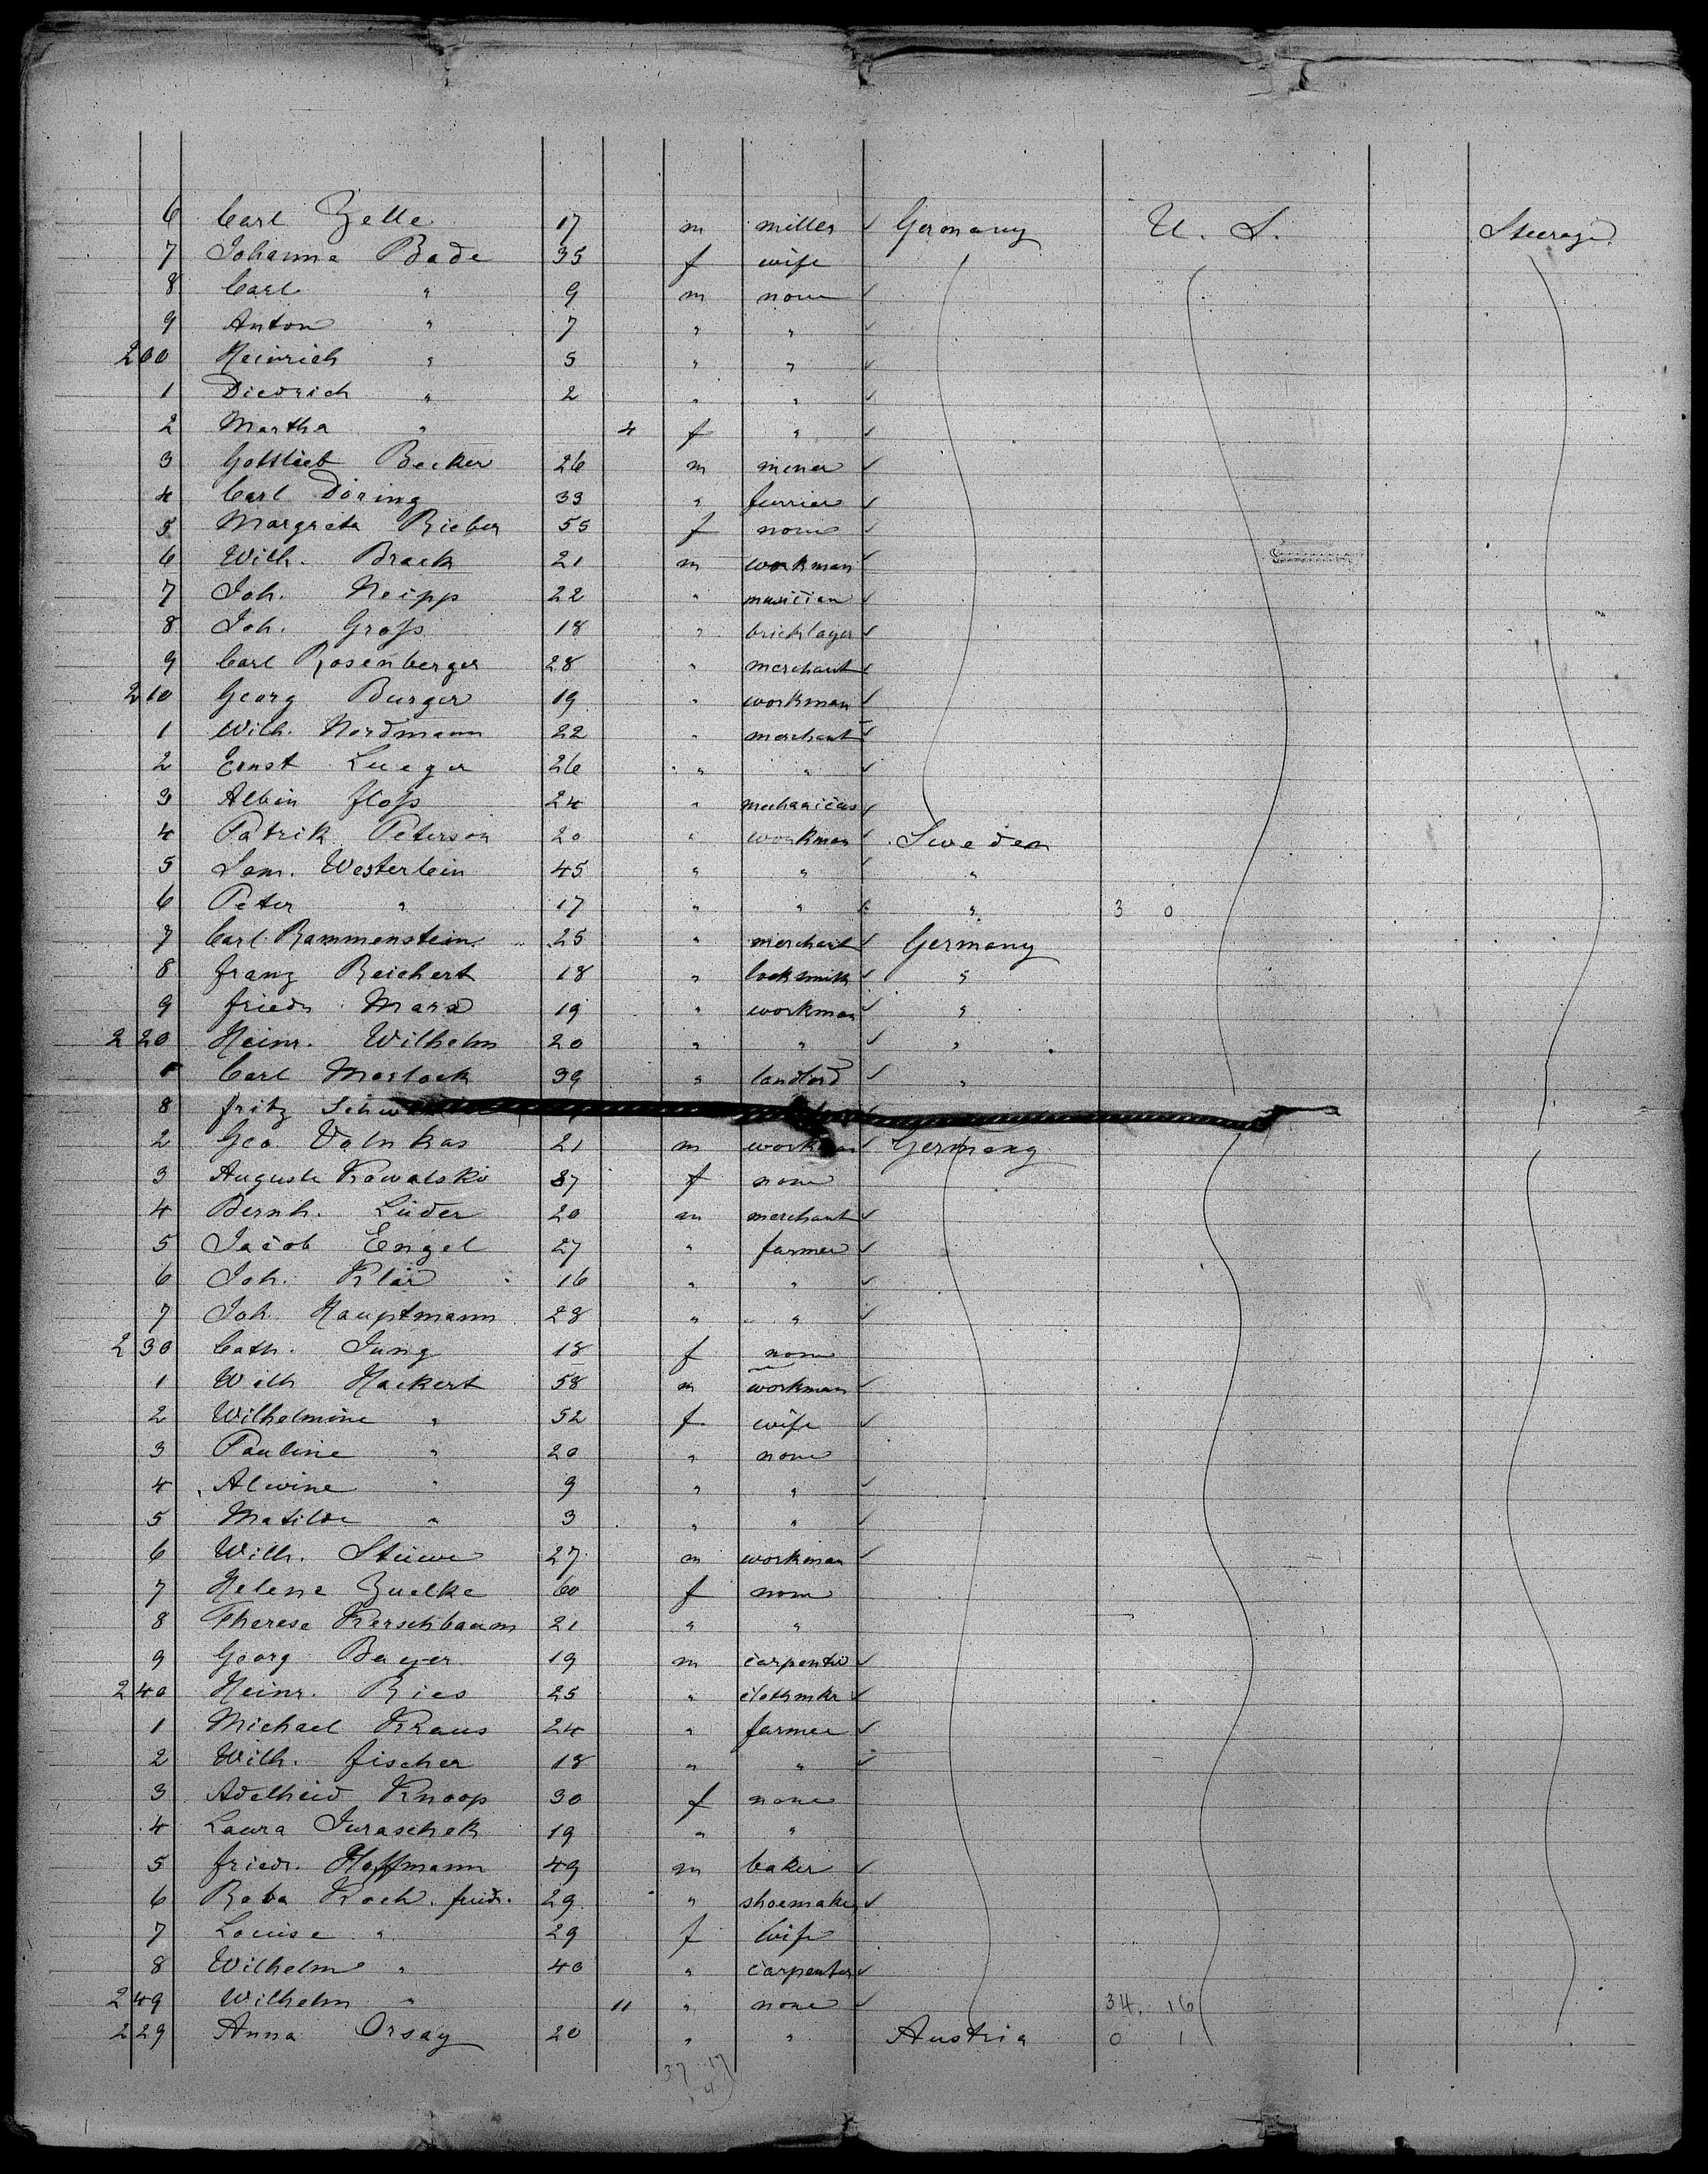 6 Carl Zelle 17 m miller ✓ Germany U. S. Steerage
7 Johanne Bade 35 f wife
8 Carl " 9 m none ✓
9 Anton " 7 " " ✓
200 Heinrich " 5 " " ✓
1 Diedrich " 2 " " ✓
2 Martha " 4 f " ✓
3 Gottlieb Becker 26 m miner ✓
4 Carl Döring 33 " furrier ✓
5 Margreta Rieber 55 f none ✓
6 Wilh. Brack 21 m workman ✓
7 Joh. Neipp 22 " musician ✓
8 Joh. Groß 18 " bricklayer ✓
9 Carl Rosenberger 28 " merchant ✓
210 Georg Burger 19 " workman ✓
1 Wilh. Nordmann 22 " merchant ✓
2 Ernst Lueger 26 " " ✓
3 Albin Floß 24 " mechanicus ✓
4 Patrik Peterson 20 " workman ✓ Sweden
5 Sam. Westerlein 45 " " ✓ "
6 Peter " 17 " " ✓ " 3 0
7 Carl Rammenstein 25 " merchant ✓ Germany
8 Franz Reichert 18 " locksmith ✓ "
9 Friedr Marx 19 " workman ✓ "
220 Heinr. Wilhelm 20 " " ✓ "
Carl Morlock 39 " landlord ✓ "
8 Fritz
2 Geo. Volnkas 21 m workman ✓ Germany
3 Auguste Kowalski 37 f none
4 Bernh. Lüder 20 m merchant ✓
5 Jacob Engel 27 " farmer ✓
6 Joh. Klär 16 " " ✓
7 Joh. Hauptmann 28 " " ✓
230 Cath. Jung 18 f none
1 Wilh Hackert 58 m workman ✓
2 Wilhelmine " 52 f wife ✓
3 Pauline " 20 " none
4 Alwine " 9 " " ✓
5 Matilde " 3 " " ✓
6 Wilh. Stüwe 27 m workman ✓
7 Helene Zuelke 60 f none
8 Therese Kerschbaum 21 " "
9 Georg Bayer 19 m carpenter ✓
240 Heinr. Ries 25 " clothmkr ✓
1 Michael Kraus 24 " farmer ✓
2 Wilh. Fischer 18 " " ✓
3 Adelheid Knoop 30 f none
4 Laura Juraschek 19 " "
5 Friedr. Hoffmann 49 m baker ✓
6 Koch. friedr. 29 " shoemaker ✓
7 Louise " 29 f wife
8 Wilhelm " 40 " carpenter ✓
249 Wilhelm " 11 " none ✓ 34. 16
229 Anna Orsay 20 " " Austria 0 1
37 17